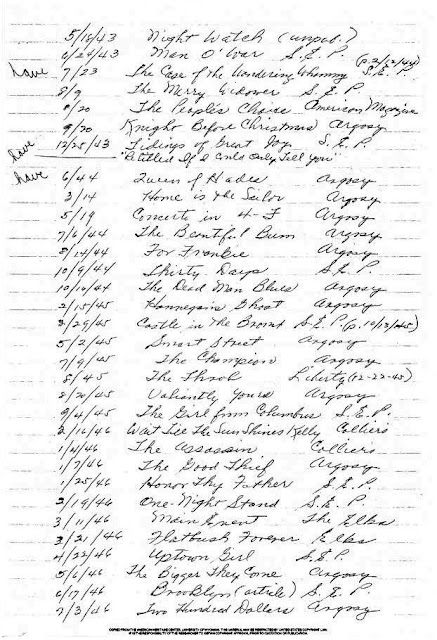 5/18/43 Night Watch (unpub.)
6/24/43 Man O'War S.E.P. (p. 2/12/44)
have 7/23 The Case of the Wandering Whammy S.E.P.
8/9 The Merry Widower S.E.P.
8/20 The People's Choice American Magazine
9/20 Knight Before Christmas Argosy
have 12/25/43 Tidings of Great Joy S.E.P.
"Retitled If I Could Only Tell You"
have 6/44 Queen of Hades Argosy
3/14 Home is the Sailor Argosy
5/19 Concerto in 4-F Argosy
7/6/44 The Beautiful Bum Argosy
8/14/44 For Frankie Argosy
10/9/44 Thirty Days S.E.P.
10/10/44 The Dead Man Blues Argosy
2/15/45 Hannegan's Ghost Argosy
3/29/45 Castle in The Bronx S.E.P. (p. 10/13/45)
5/2/45 Smart Street Argosy
7/9/45 The Champion Argosy
8/45 The Throb Liberty (12-22-45)
8/20/45 Valiantly Yours Argosy
9/4/45 The Girl from Columbus S.E.P.
2/16/46 Wait Till The Sun Shines Kelly Colliers
1/4/46 The Assassin Colliers
1/7/46 The Good Thief Argosy
1/25/46 Honor Thy Father S.E.P.
2/19/46 One-Night Stand S.E.P.
3/11/46 Main Event The Elks
3/21/46 Flatbush Forever Elks
4/22/46 Uptown Girl S.E.P.
5/6/46 The Bigger They Come Argosy
6/17/46 Brooklyn (article) S.E.P.
7/3/46 Two Hundred Dollars Argosy